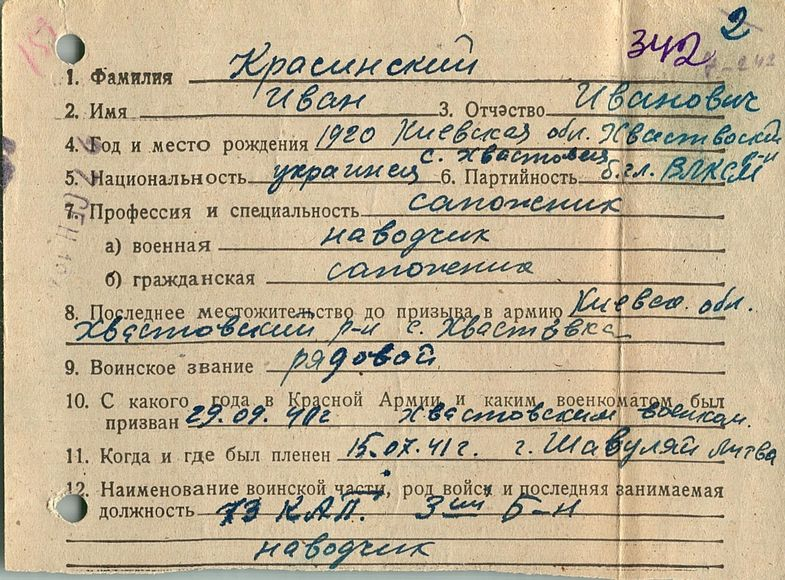 342 2
1. Фамилия Красинский
2. Имя Иван 3. Отчество Иванович
4. Год и место рождения 1920 Киевская обл. Хвастовский р-н
с. Хвастовец
5. Национальность украинец 6. Партийность б. чл. ВЛКСМ
7. Профессия и специальность сапожник
а) военная наводчик
б) гражданская сапожник
8. Последнее местожительство до призыва в армию Киевск. обл.
Хвастовский р-н с. Хвастовка
9. Воинское звание рядовой
10. С какого года в Красной Армии и каким военкоматом был
призван 29.09.40г Хвастовским военком.
11. Когда и где был пленен 15.07.41г. г. Шавуляй Литва
12. Наименование воинской части, род войск и последняя занимаемая
должность 73 КАП. 3ий Б-н
наводчик